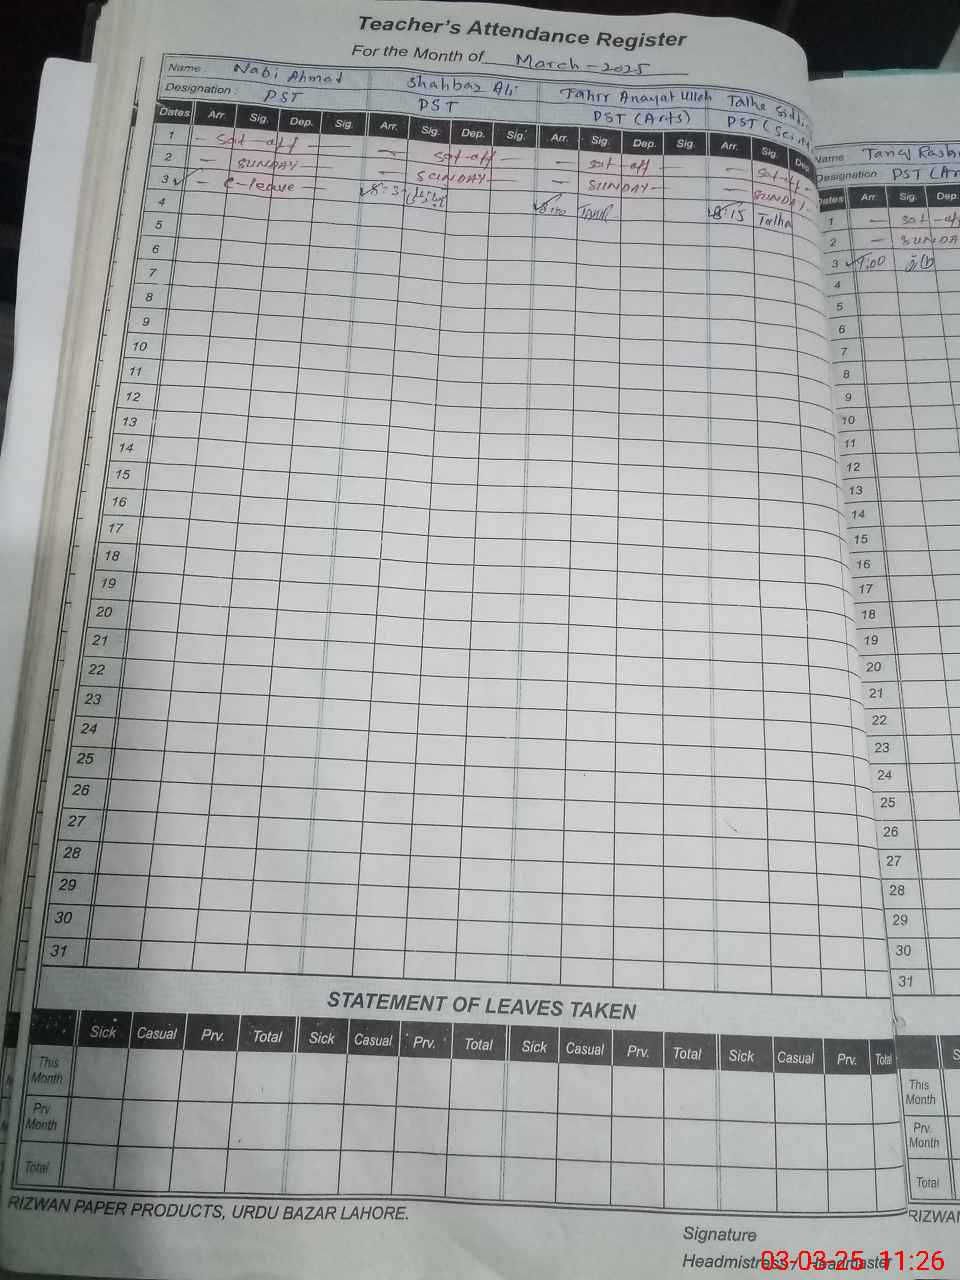 Teacher's Attendance Register
For the Month of March - 2025
Name : Nabi Ahmad Shahbaz Ali Tahir Anayat Ullah Talha
Designation : PST PST PST (Arts) PST (
Dates Arr. Sig. Dep. Sig. Arr. Sig. Dep. Sig. Arr. Sig. Dep. Sig. Arr. Sig. Dep
1 — Sat - off — — Sat - off — — Sat - off — — Sat - off -
2 — SUNDAY — — SUNDAY — — SUNDAY — — SUNDAY -
3 — C-leave — 8:00 Tahir 8:15 Talha
4
5
6
7
8
9
10
11
12
13
14
15
16
17
18
19
20
21
22
23
24
25
26
27
28
29
30
31
STATEMENT OF LEAVES TAKEN
Sick Casual Prv. Total Sick Casual Prv. Total Sick Casual Prv. Total Sick Casual Prv. Total
This Month
Prv. Month
Total
RIZWAN PAPER PRODUCTS, URDU BAZAR LAHORE.
Signature
Headmistress / Headmaster
Name :
Designation : PST (Ar
Dates Arr. Sig. Dep.
1 — Sat - off
2 — SUNDA
3
4
5
6
7
8
9
10
11
12
13
14
15
16
17
18
19
20
21
22
23
24
25
26
27
28
29
30
31
S
This Month
Prv. Month
Total
RIZWAN
03-03-25 11:26